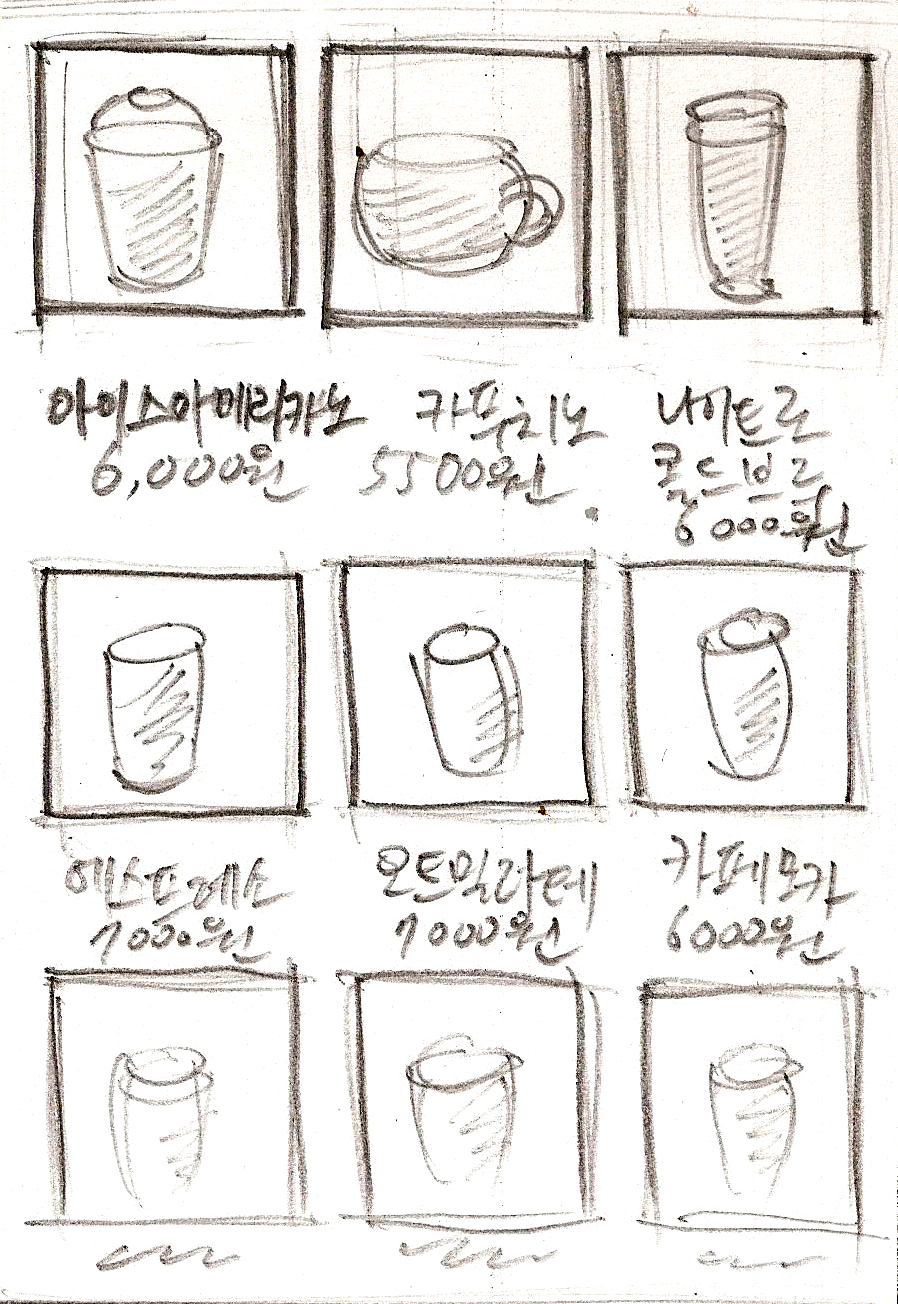 아이스아메리카노
6,000원
카푸치노
5500원
나이트로
콜드브루
6000원
에스프레소
7000원
오트밀라떼
7000원
카페모카
6000원